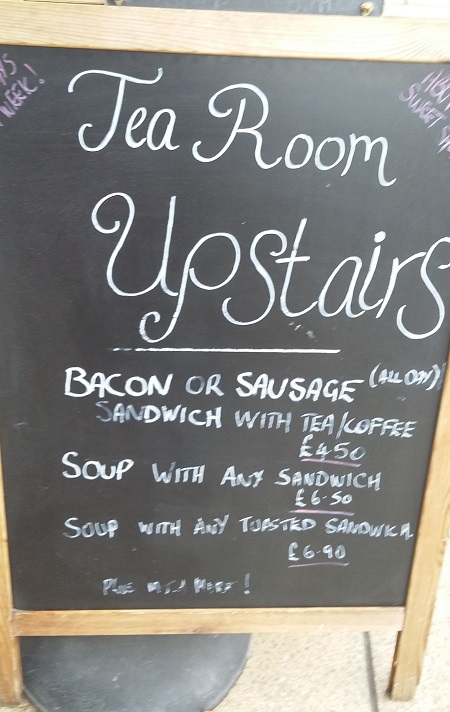 WEEK!
SWEET
Tea Room
Upstairs
BACON OR SAUSAGE (ALL DAY)
SANDWICH WITH TEA/COFFEE
£4.50
SOUP WITH ANY SANDWICH
£6.50
SOUP WITH ANY TOASTED SANDWICH
£6.90
PLUS MUCH MORE!